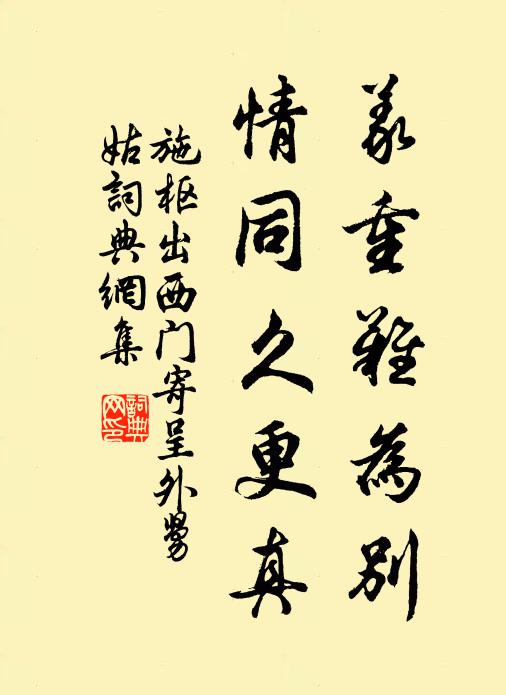 義重難為別
情同久更真
施枢出西门寄呈外舅
姑詞典網集
詞典
网印